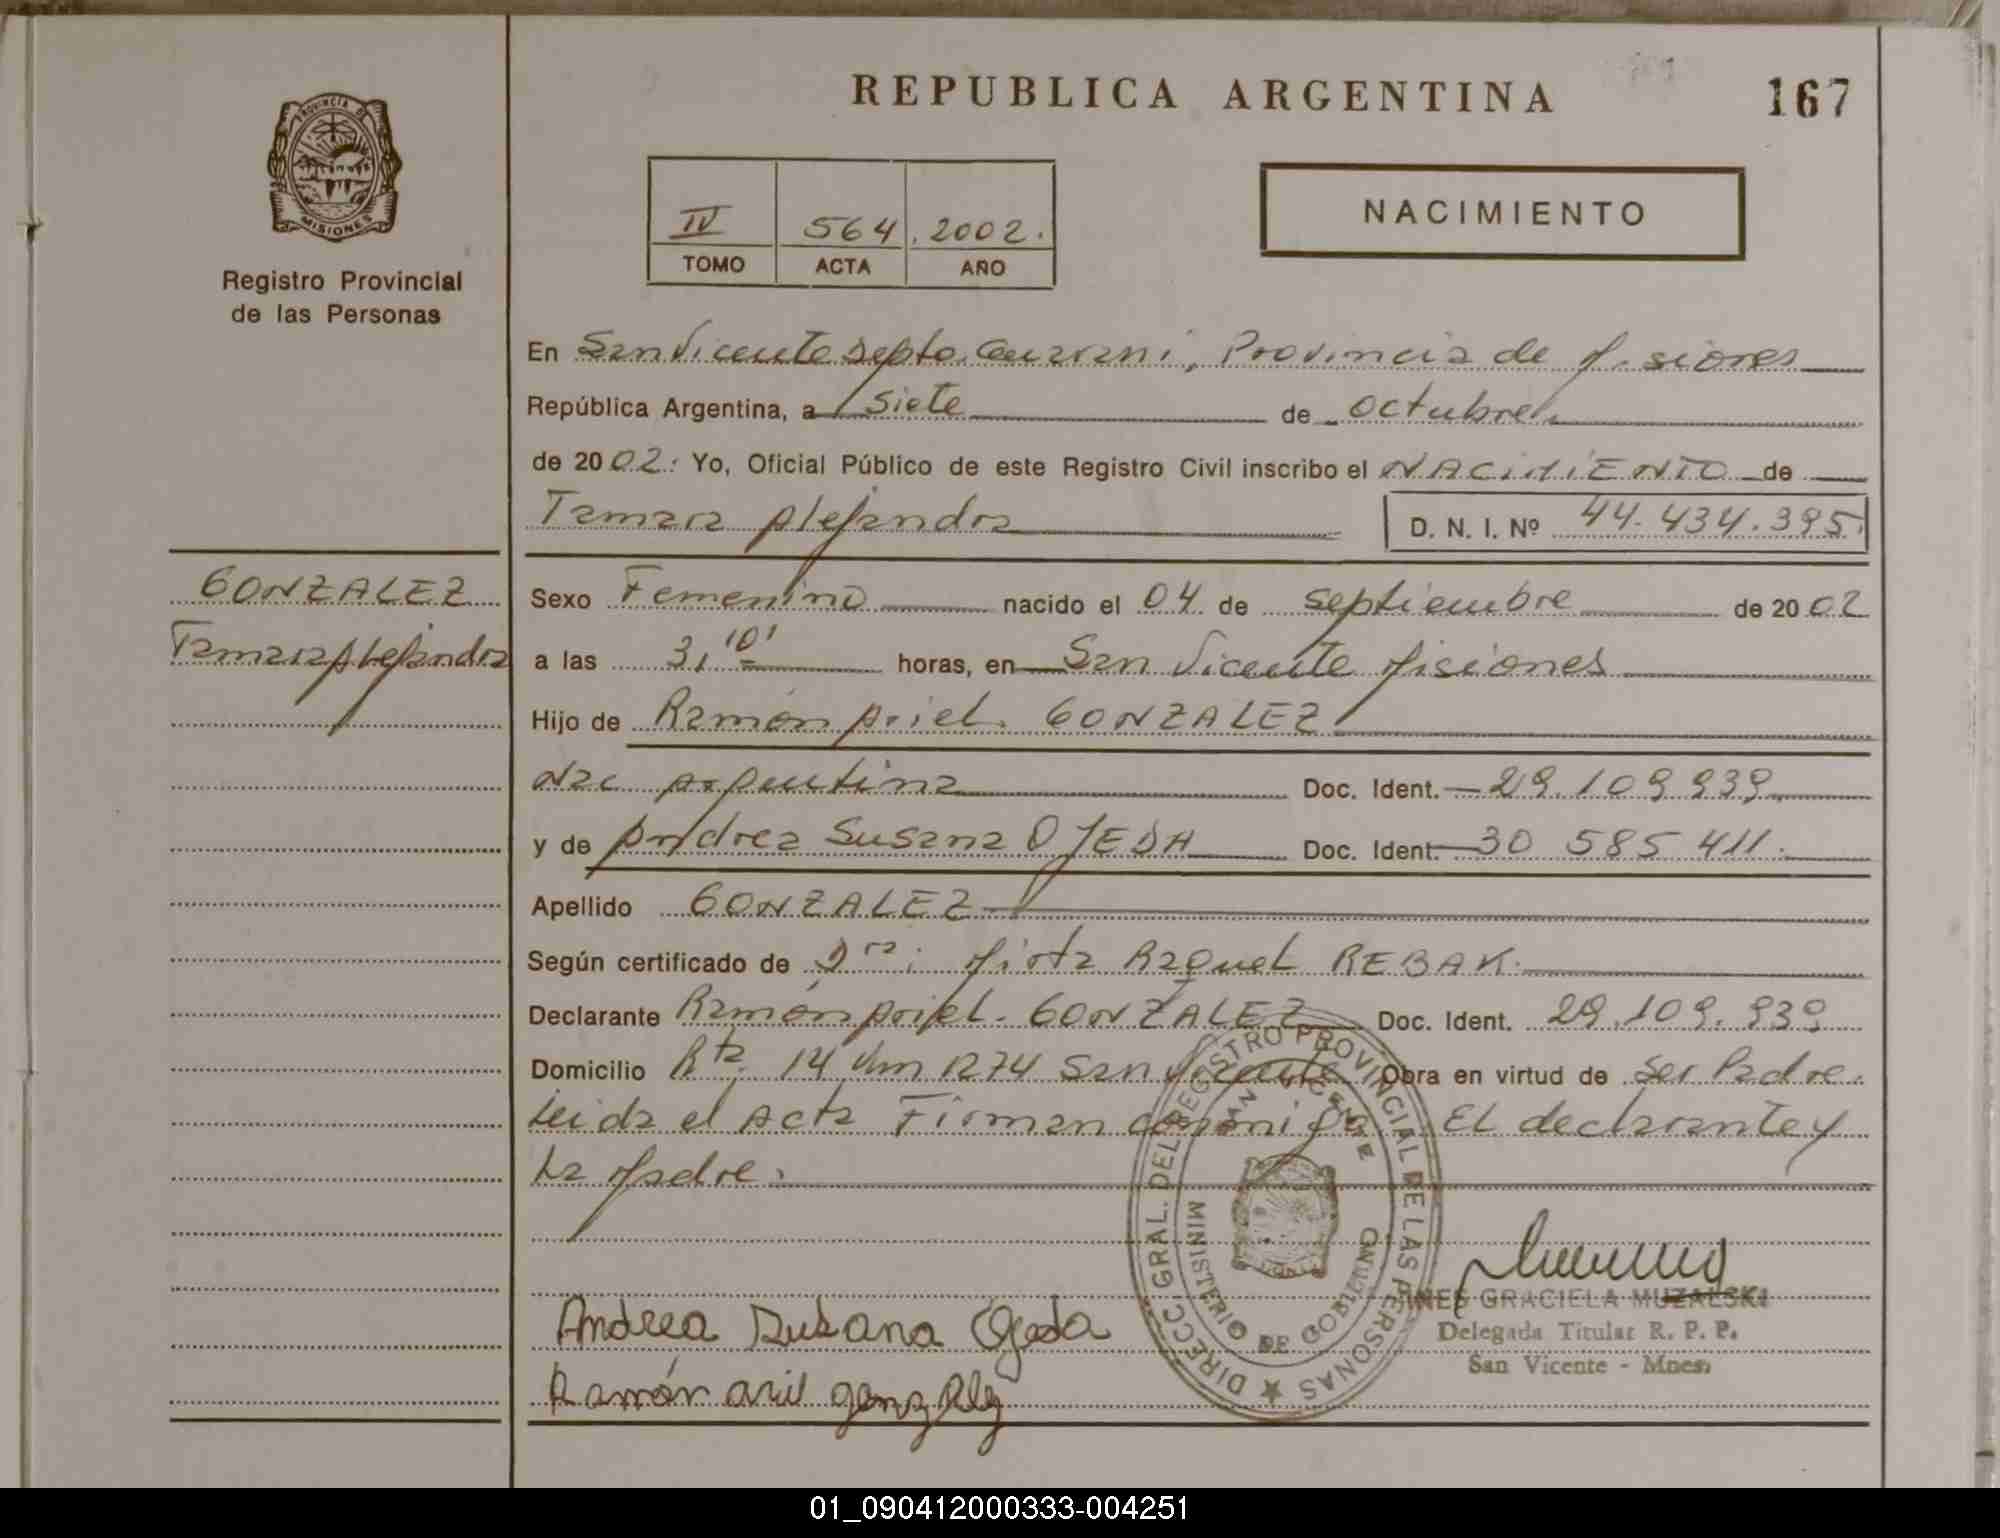 REPUBLICA ARGENTINA
167
PROVINCIA DE
MISIONES
Registro Provincial
de las Personas
IV 564 2002.
TOMO ACTA AÑO
NACIMIENTO
En San Vicente Depto. Guarani, Provincia de Misiones
República Argentina, a siete de octubre
de 2002. Yo, Oficial Público de este Registro Civil inscribo el NACIMIENTO de
Tamara Alejandra D. N. I. Nº 44.434.395.
GONZALEZ
Tamara Alejandra
Sexo Femenino nacido el 04 de septiembre de 2002
a las 3,10' horas, en San Vicente Misiones
Hijo de Ramón Ariel. GONZALEZ
Nac Argentina Doc. Ident. 29.109.939
y de Andrea Susana OJEDA Doc. Ident. 30 585 411.
Apellido GONZALEZ
Según certificado de Dra: Mirta Raquel REBAK.
Declarante Ramón Ariel. GONZALEZ Doc. Ident. 29.109.939
Domicilio Rta. 14 Km 1274 San Vicente Obra en virtud de ser Padre.
Leida el Acta Firman conmigo El declarante y
La Madre.
DIRECC. GRAL. DEL REGISTRO PROVINCIAL DE LAS PERSONAS
SAN VICENTE
MINISTERIO DE GOBIERNO
INES GRACIELA MUZALSKI
Delegada Titular R. P. P.
San Vicente - Mnes.
Andrea Susana Ojeda
Ramón ariel gonzalez
01_090412000333-004251